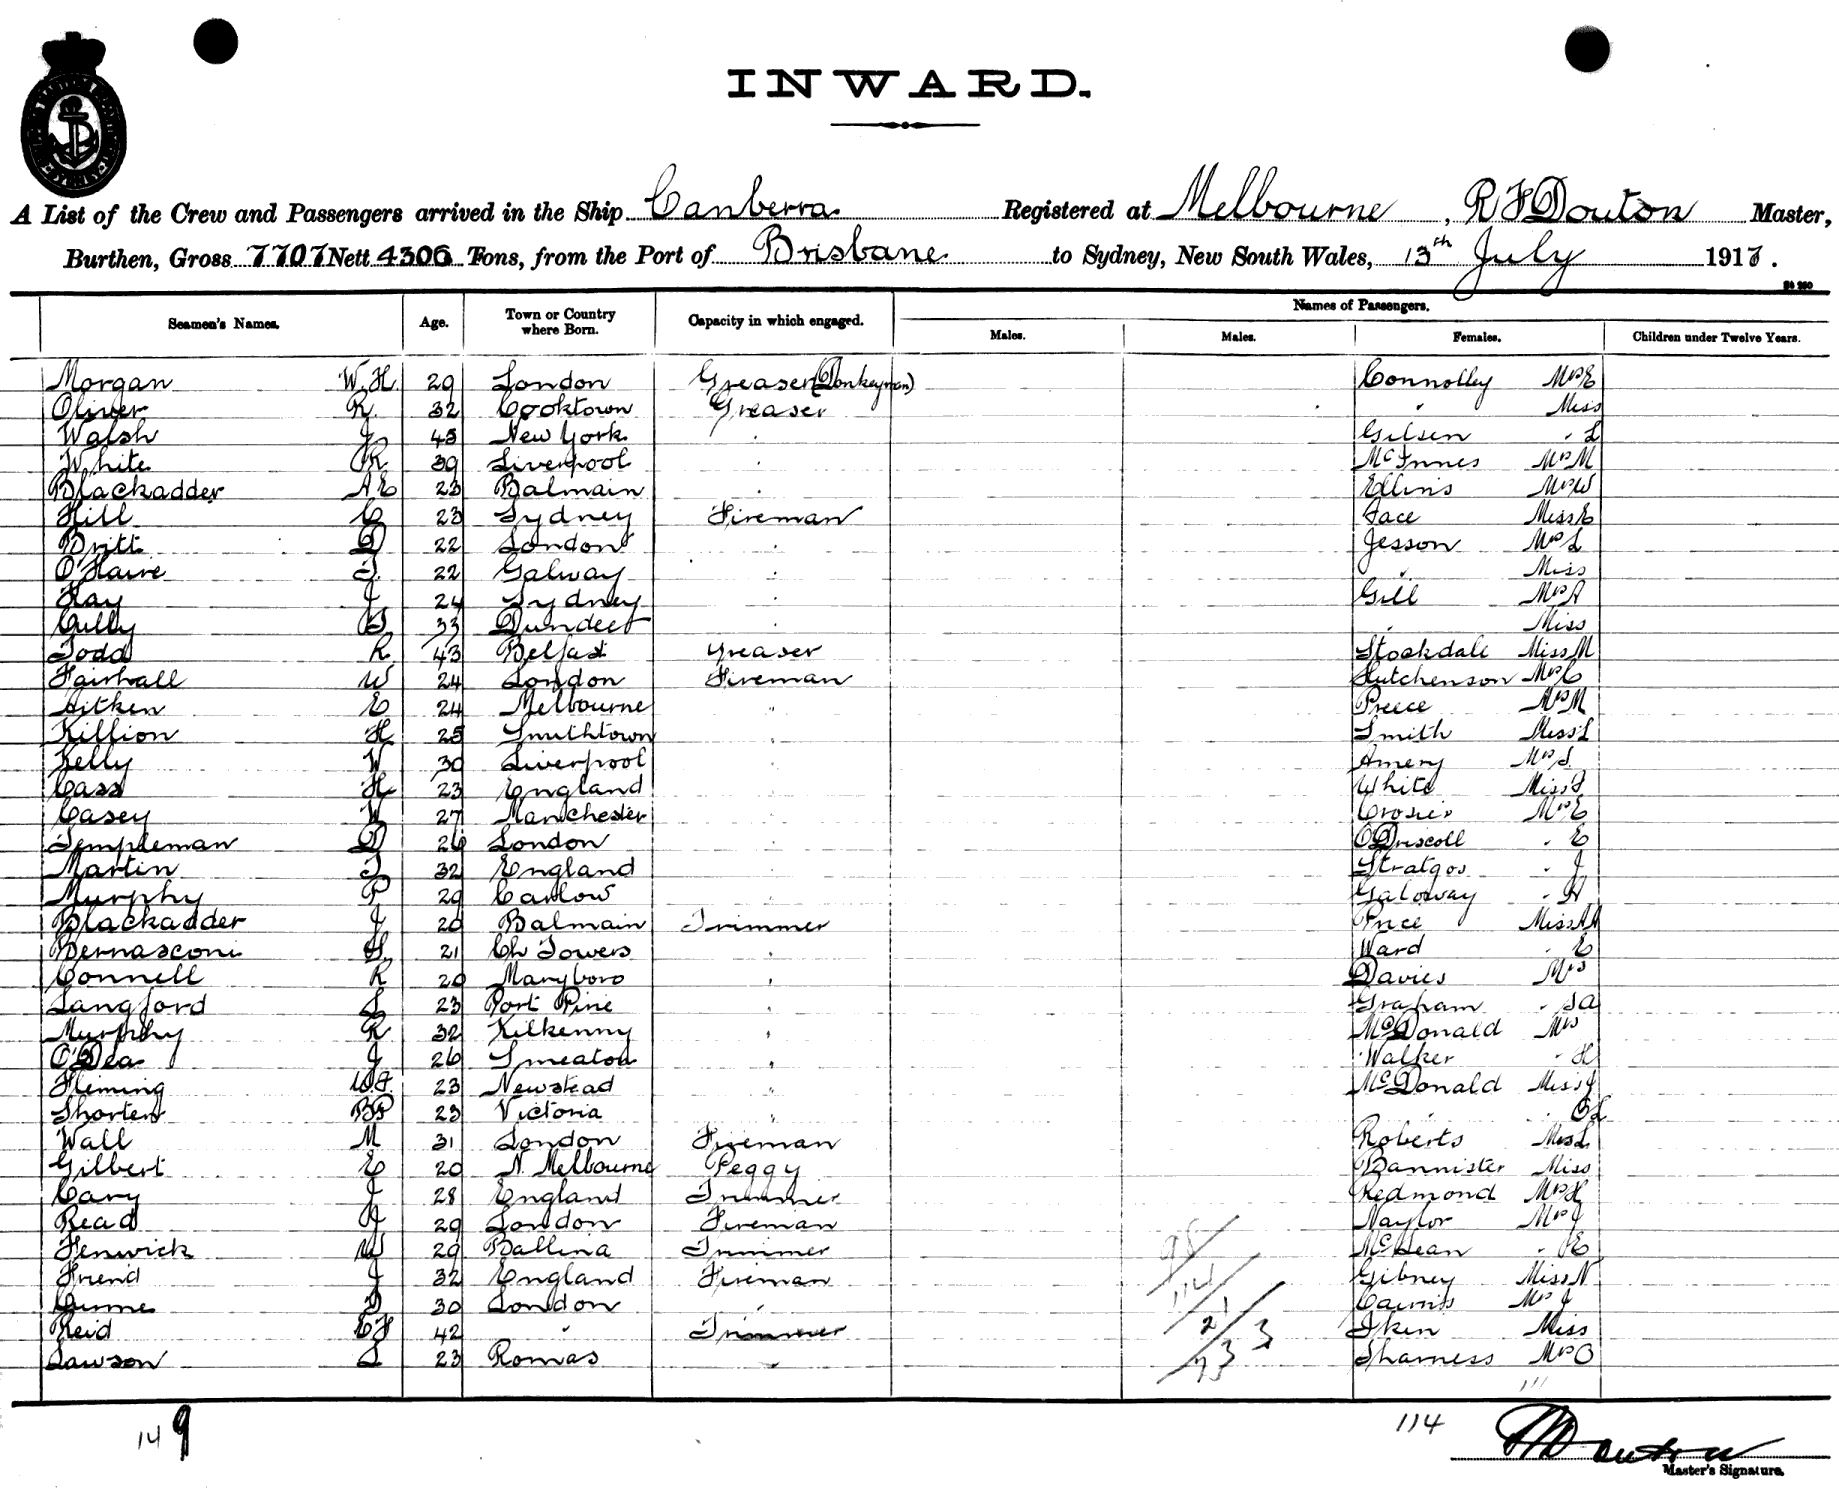 INWARD.
A List of the Crew and Passengers arrived in the Ship Canberra Registered at Melbourne, R F Douton Master,
Burthen, Gross 7707 Nett 4306 Tons, from the Port of Brisbane to Sydney, New South Wales, 13th July 1917.
Names of Passengers.
Seamen's Names. Age. Town or Country where Born. Capacity in which engaged. Males. Males. Females. Children under Twelve Years.
Morgan W.H. 29 London Greaser (Donkeyman) Connolly Mrs E
Oliver R. 32 Cooktown Greaser " Miss
Walsh J 45 New York " Gilsen " L
White R 39 Liverpool " McInnes Mrs M
Blackadder A E 23 Balmain " Ellins Mrs W
Hill C 23 Sydney Fireman Face Miss E
Britt D 22 London " Jesson Mrs L
O'Haire T. 22 Galway " " Miss
Hay J 24 Sydney " Gill Mrs A
Cully B 33 Dundee " " Miss
Todd R 43 Belfast Greaser Stockdale Miss M
Fairhall W 24 London Fireman Hutchenson Mrs C
Aitken E 24 Melbourne " Preece Mrs M
Killion H 25 Smithtown " Smith Miss L
Kelly W 30 Liverpool " Amery Mrs S
Cass H 23 England " White Miss
Casey W 27 Manchester " Crosier Mrs E
Templeman D 26 London " O'Driscoll " E
Martin T 32 England " Stratgos " J
Murphy P 29 Carlow " Galoway " A
Blackadder J 20 Balmain Trimmer Price Miss
Bernasconi 21 Ch Towers " Ward " E
Connell R 20 Maryboro " Davies Mrs
Langford L 23 Port Pirie " Graham "
Murphy R 32 Kilkenny " McDonald Mrs
O'Dea J 26 Smeaton " Walker " H
Fleming W.J. 23 Newstead " McDonald Miss J
Shorten B P 23 Victoria " " "
Wall M 31 London Fireman Roberts Miss L
Gilbert E 20 N. Melbourne Peggy Bannister Miss
Cary J 28 England Trimmer Redmond Mrs H
Read A 29 London Fireman Naylor Mrs J
Fenwick W 29 Ballina Trimmer McLean " E
Friend J 32 England Fireman Gibney Miss N
Dunne D 30 London " Cairns Mrs J
Reid C F 42 " Trimmer Iken Miss
Lawson L 23 Romas " Sharness Mrs O
149 114
Master's Signature.